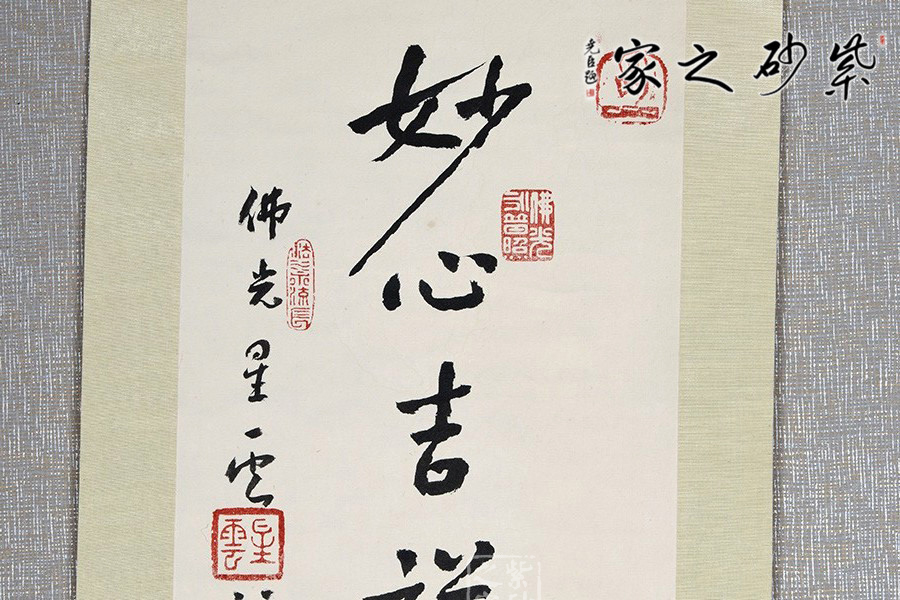 紫砂之家
妙心吉祥
佛光星雲
佛光永普照
法水流長
星雲